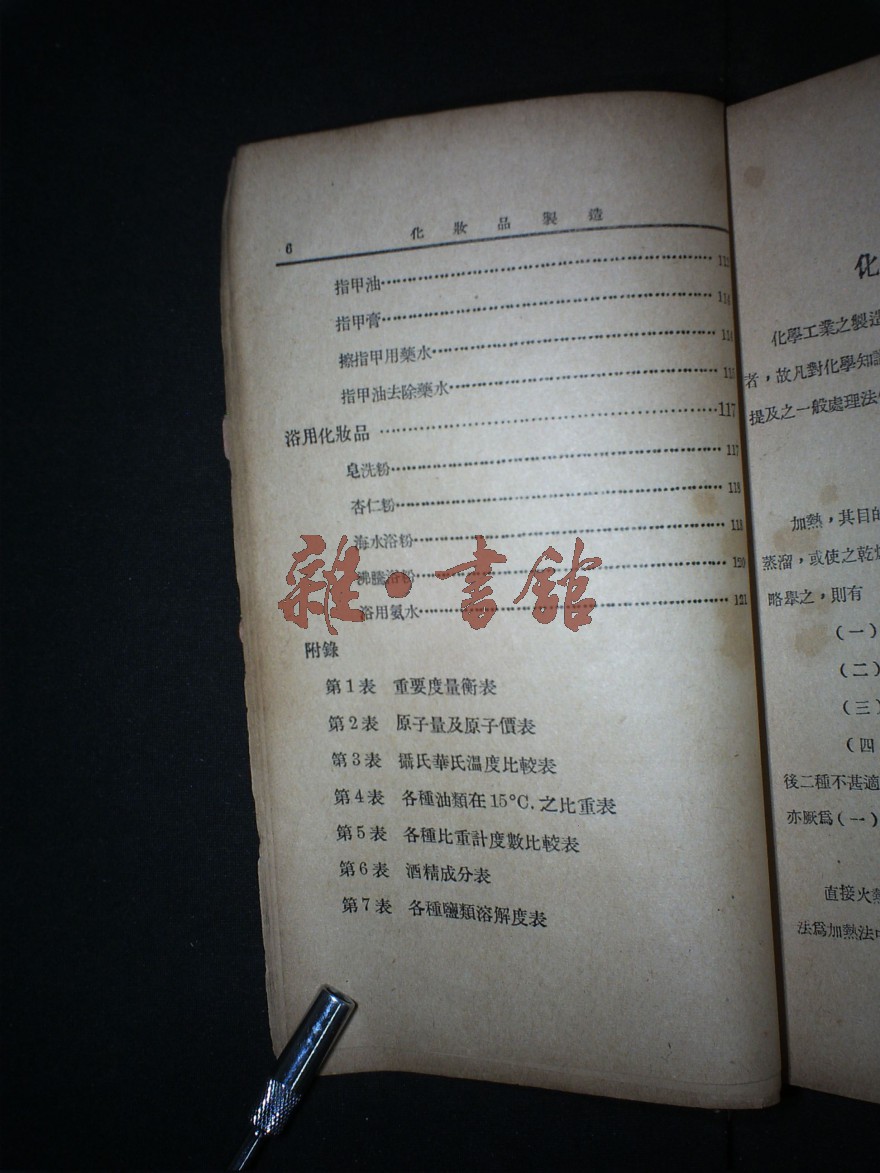 6 化妝品製造
指甲油 113
指甲膏 114
擦指甲用藥水 114
指甲油去除藥水 115
浴用化妝品 117
皂洗粉 117
杏仁粉 118
海水浴粉 118
沸騰浴粉 120
浴用氨水 121
附錄
第1表 重要度量衡表
第2表 原子量及原子價表
第3表 攝氏華氏溫度比較表
第4表 各種油類在15°C.之比重表
第5表 各種比重計度數比較表
第6表 酒精成分表
第7表 各種鹽類溶解度表
雜·書館
化
化學工業之製造
者，故凡對化學知識
提及之一般處理法
加熱，其目的
蒸溜，或使之乾燥
略舉之，則有
(一)
(二)
(三)
(四
後二種不甚適
亦厥爲(一)
直接火熱
法爲加熱法中